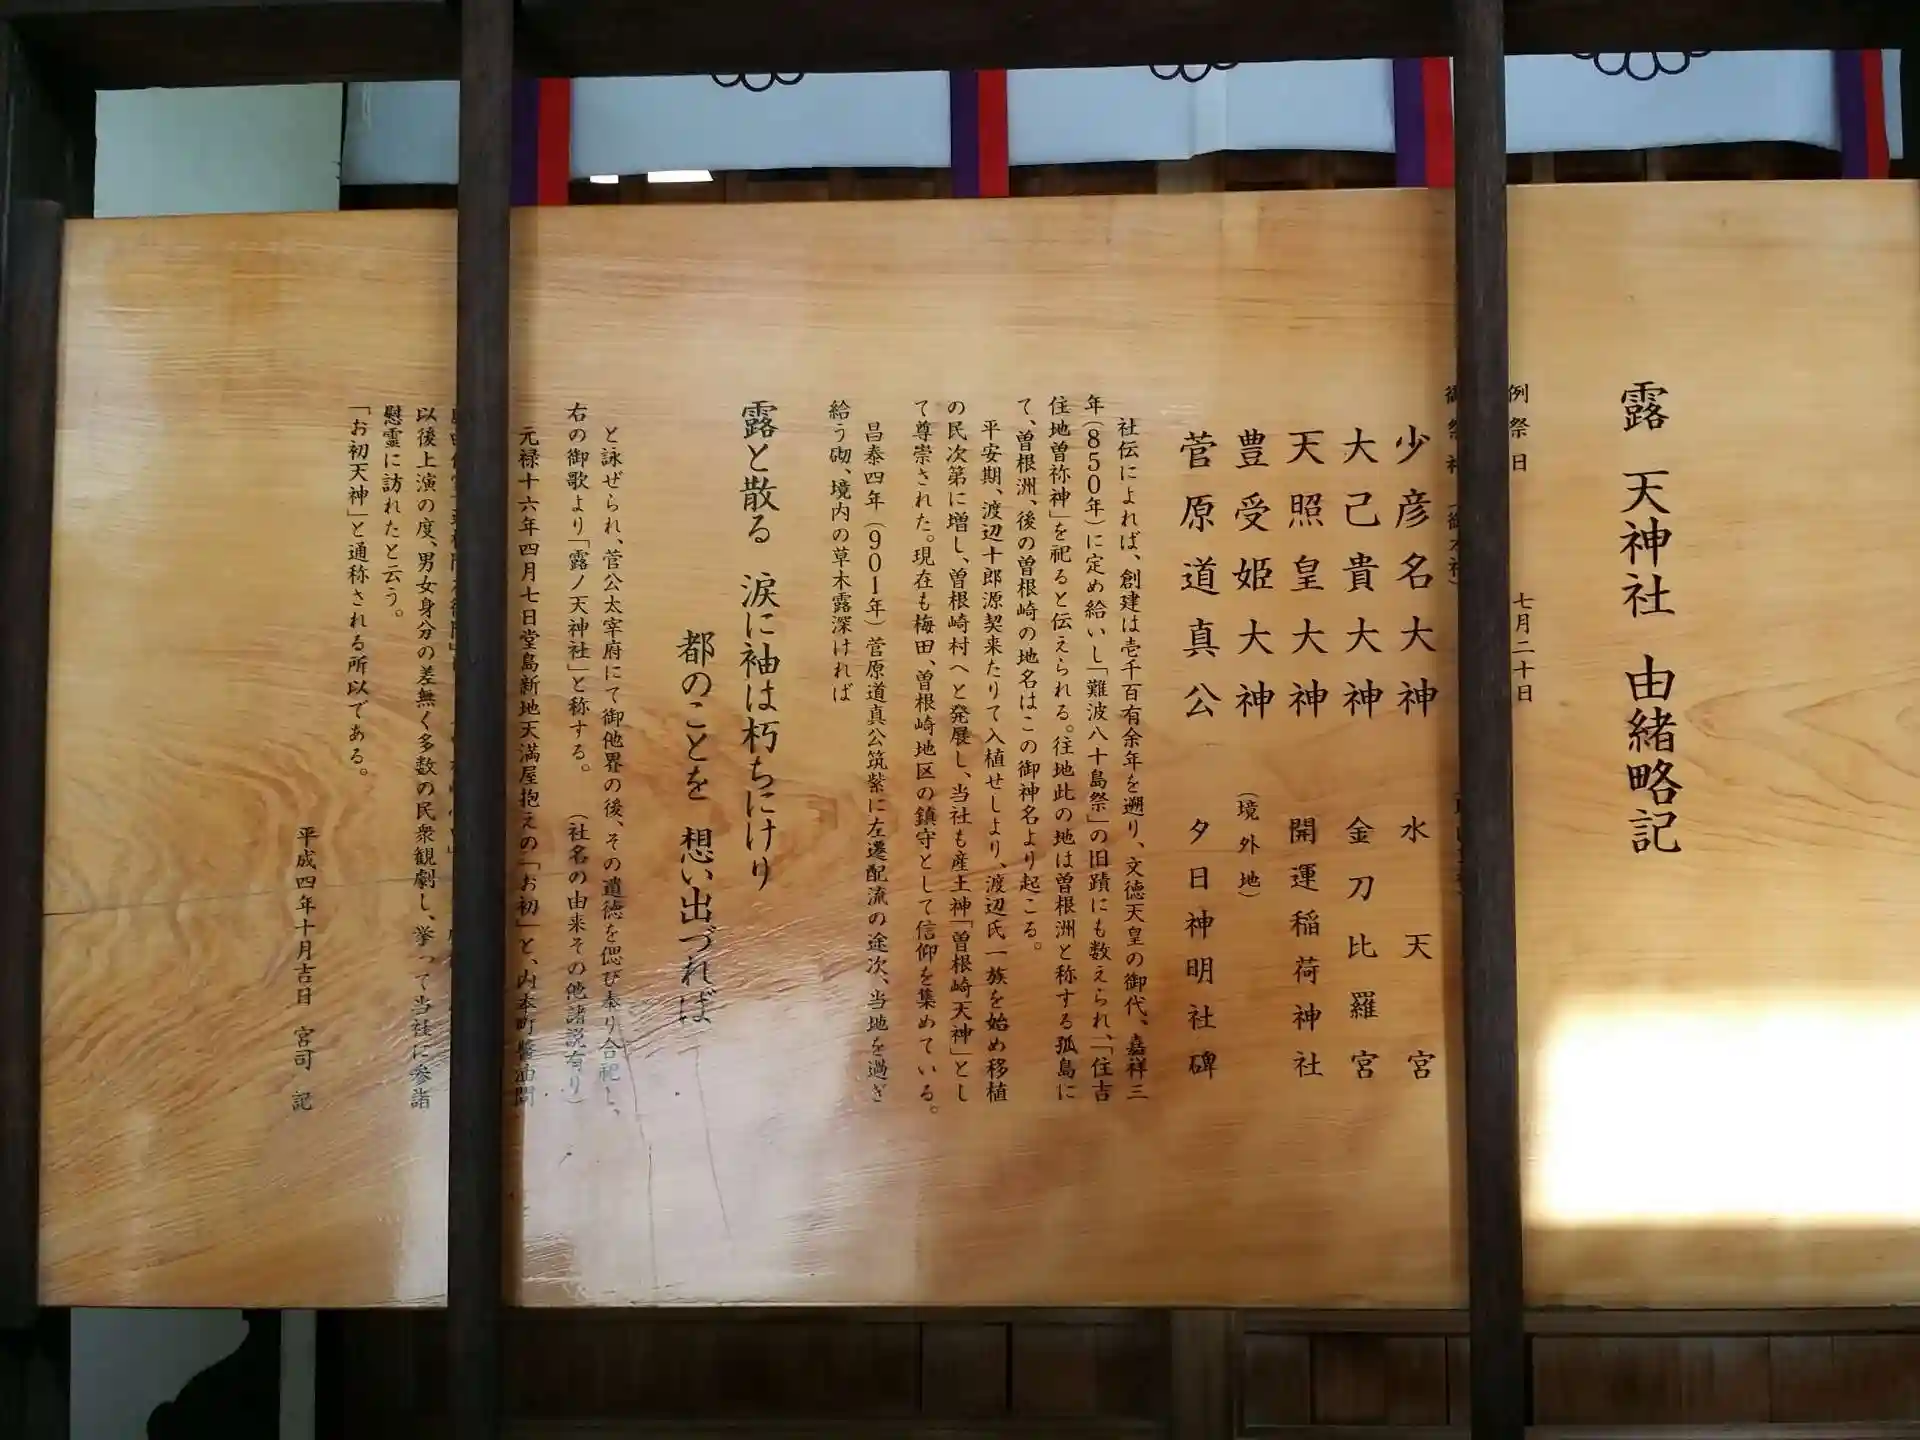 露 天神社 由緒略記
例祭日 七月二十日
少彦名大神 水天宮
大己貴大神 金刀比羅宮
天照皇大神 開運稲荷神社
豊受姫大神 (境外地)
菅原道真公 夕日神明社碑
社伝によれば、創建は壱千百有余年を遡り、文徳天皇の御代、嘉祥三
年(850年)に定め給いし「難波八十島祭」の旧蹟にも数えられ、「住吉
住地曽祢神」を祀ると伝えられる。往地此の地は曽根洲と称する孤島に
て、曽根洲、後の曽根崎の地名はこの御神名より起こる。
平安期、渡辺十郎源契来たりて入植せしより、渡辺氏一族を始め移植
の民次第に増し、曽根崎村へと発展し、当社も産土神「曽根崎天神」とし
て尊崇された。現在も梅田、曽根崎地区の鎮守として信仰を集めている。
昌泰四年(901年)菅原道真公筑紫に左遷配流の途次、当地を過ぎ
給う砌、境内の草木露深ければ
露と散る 涙に袖は朽ちにけり
都のことを 想い出づれば
と詠ぜられ、菅公太宰府にて御他界の後、その遺徳を偲び奉り合祀し、
右の御歌より「露ノ天神社」と称する。 (社名の由来その他諸説有り)
元禄十六年四月七日堂島新地天満屋抱えの「お初」と、内本町醬油問
以後上演の度、男女身分の差無く多数の民衆観劇し、挙って当社に参詣
慰霊に訪れたと云う。
「お初天神」と通称される所以である。
平成四年十月吉日 宮司 記